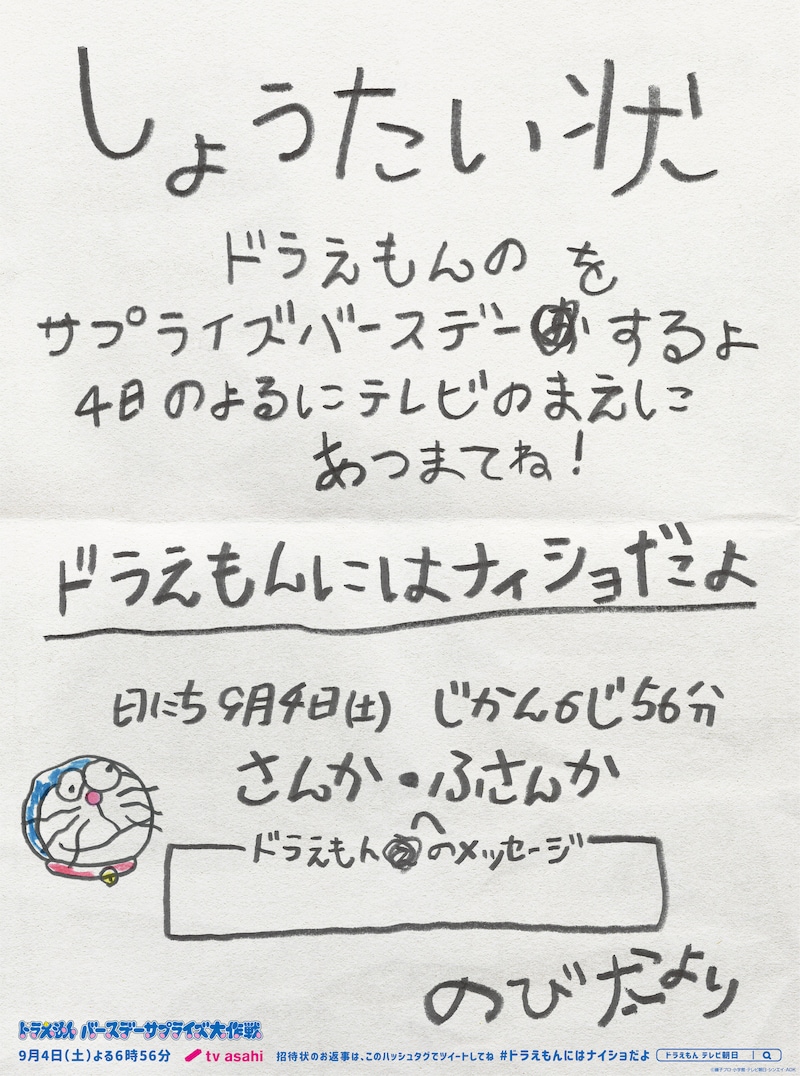 しょうたい状
ドラえもんのを
サプライズバースデーするよ
4日のよるにテレビのまえに
あつまてね!
ドラえもんにはナイショだよ
日にち9月4日(土) じかん6じ56分
さんか・ふさんか
ドラえもんへのメッセージ
のび太より
ドラえもん バースデーサプライズ大作戦
9月4日(土)よる6時56分 tv asahi 招待状のお返事は、このハッシュタグでツイートしてね #ドラえもんにはナイショだよ ドラえもん テレビ朝日
©藤子プロ・小学館・テレビ朝日・シンエイ・ADK